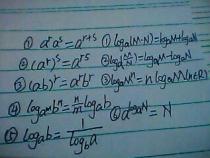 ① aʳaˢ=aʳ⁺ˢ ① logₐ(M·N)=logₐM+logₐN
② (aʳ)ˢ=aʳˢ ② logₐ(M/N)=logₐM-logₐN
③ (ab)ʳ=aʳbʳ ③ logₐMⁿ=nlogₐM(n∈R)
④ logₐmbⁿ=n/m logₐb ⑥ a^logₐN=N
⑤ logₐb=1/log_b a